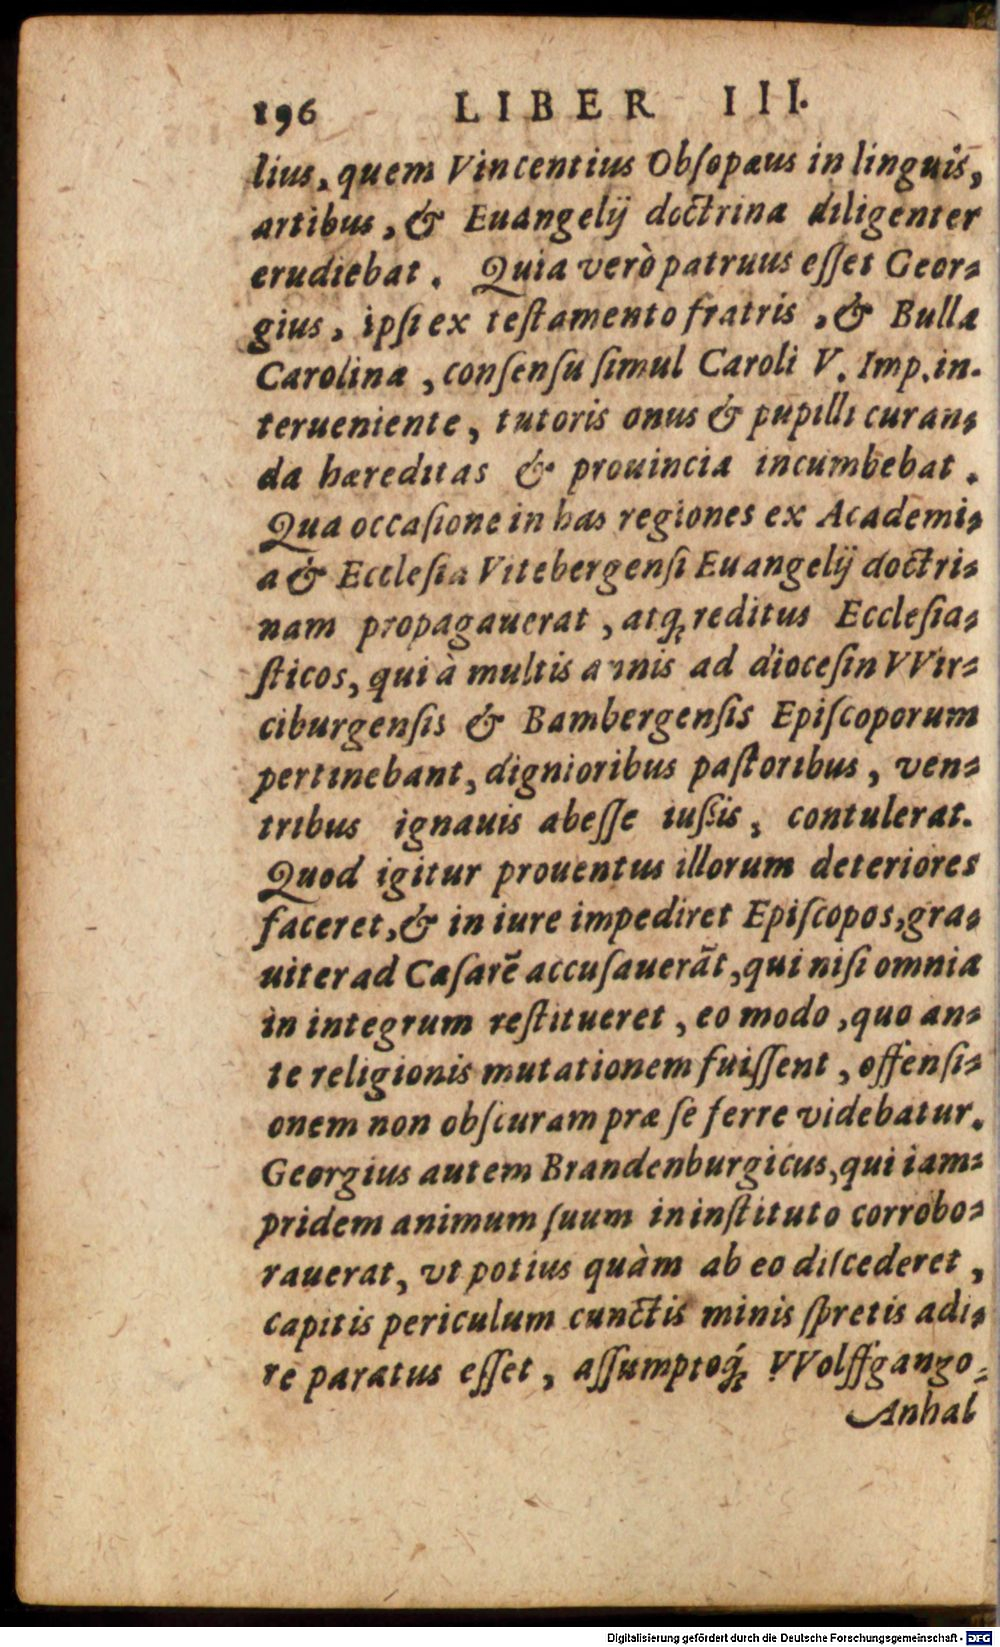 196 LIBER III.
lius, quem Vincentius Obſopæus in linguis,
artibus, & Euangelij doctrina diligenter
erudiebat. Quia verò patruus eſſet Geor-
gius, ipſi ex teſtamento fratris, & Bulla
Carolina, conſenſu ſimul Caroli V. Imp. in-
terueniente, tutoris onus & pupilli curan-
da hæreditas & prouincia incumbebat.
Qua occaſione in has regiones ex Academi-
a & Eccleſia Vitebergenſi Euangelij doctri-
nam propagauerat, atq; reditus Eccleſia-
ſticos, qui à multis annis ad diocesin VVir-
ciburgenſis & Bambergenſis Epiſcoporum
pertinebant, dignioribus paſtoribus, ven-
tribus ignauis abeſſe iuſsis, contulerat.
Quod igitur prouentus illorum deteriores
faceret, & in iure impediret Epiſcopos, gra-
uiter ad Cæſarē accuſauerāt, qui niſi omnia
in integrum reſtitueret, eo modo, quo an-
te religionis mutationem fuiſſent, offenſi-
onem non obſcuram præ ſe ferre videbatur.
Georgius autem Brandenburgicus, qui iam-
pridem animum ſuum in inſtituto corrobo-
rauerat, vt potius quàm ab eo diſcederet,
capitis periculum cunctis minis ſpretis adi-
re paratus eſſet, aſſumptoq́; VVolffgango-
Anhal
Digitalisierung gefördert durch die Deutsche Forschungsgemeinschaft - DFG